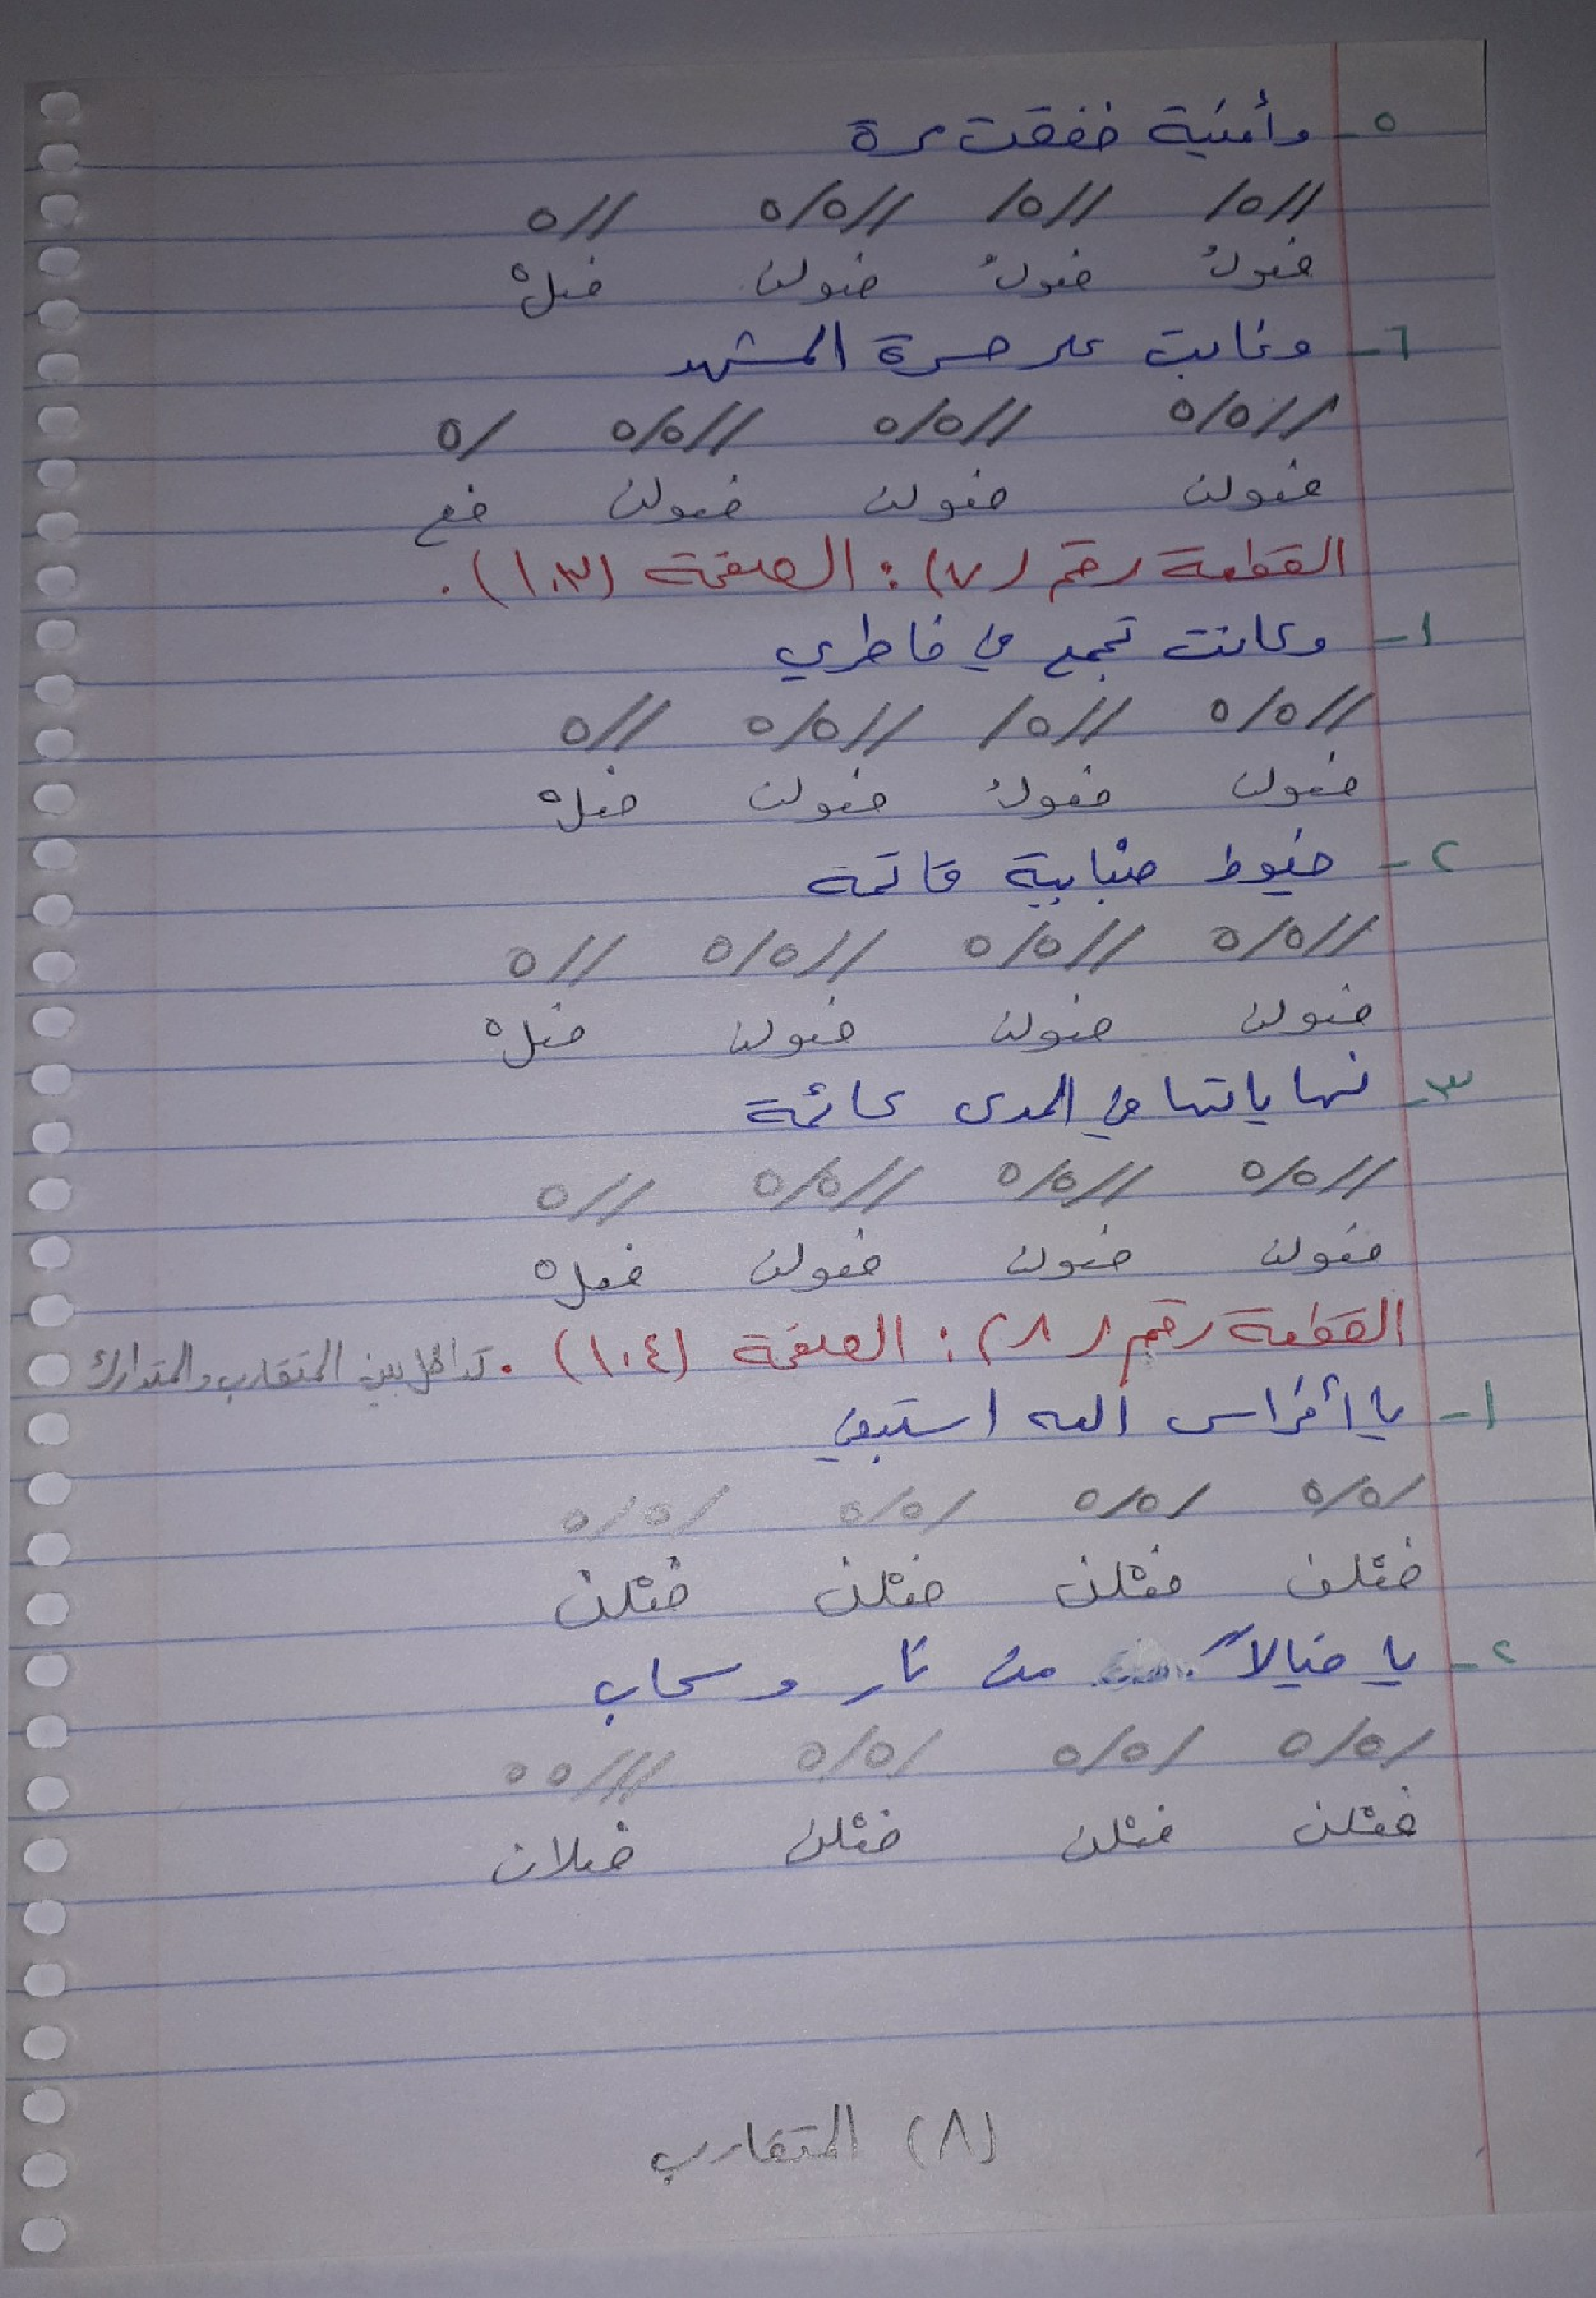 ٥- وأمنية خفقت مرة
//٥/ //٥/ //٥/٥ //٥
فعولُ فعولُ فعولن فعلْ
٦- وغابت على حسرة المشهد
//٥/٥ //٥/٥ //٥/٥ /٥
فعولن فعولن فعولن فع
القطعة رقم (٧): الصفحة (١٠٣).
١- وكانت تجمع في خاطري
//٥/٥ //٥/ //٥/٥ //٥
فعولن فعولُ فعولن فعلْ
٢- خيوط ضبابية قاتمة
//٥/٥ //٥/٥ //٥/٥ //٥
فعولن فعولن فعولن فعلْ
٣- نهاياتها في المدى عائمة
//٥/٥ //٥/٥ //٥/٥ //٥
فعولن فعولن فعولن فعلْ
القطعة رقم (٨): الصفحة (١٠٤). تداخل بين المتقارب والمتدارك
١- يا أفراس الله استبقي
/٥/٥ /٥/٥ /٥/٥ /٥/٥
فعْلن فعْلن فعْلن فعْلن
٢- يا خيالاً من نار وسحاب
/٥/٥ /٥/٥ /٥/٥ ///٥٥
فعْلن فعْلن فعْلن فعلان
(٨) المتقارب